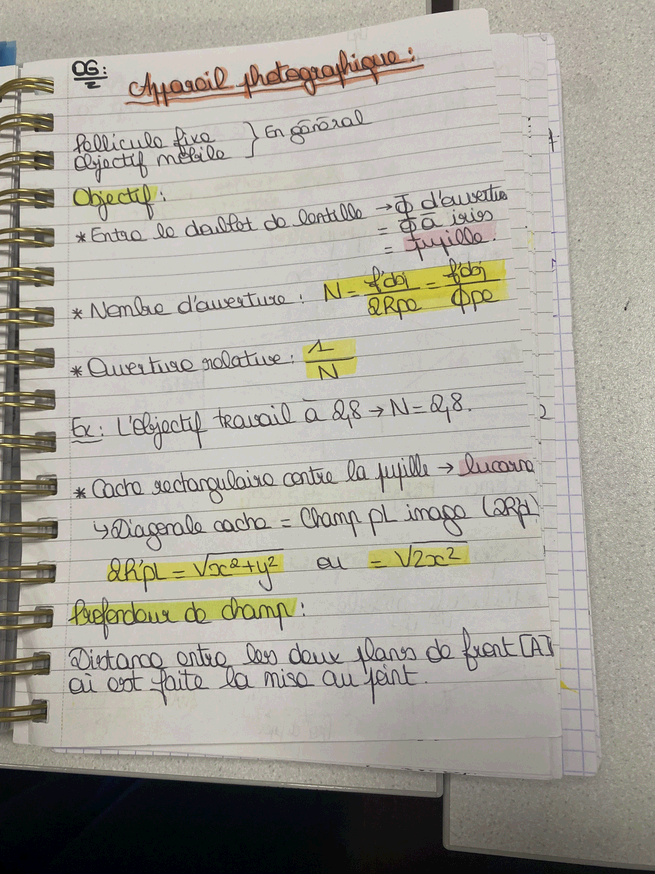 OG:
Appareil photographique:
Pellicule fixe } En général
Objectif mobile
Objectif:
* Entre le doublet de lentille → Φ d'ouverture
= Φ à iris
= pupille.
* Nombre d'ouverture: N = f'obj / 2Rpe = f'obj / Φpe
* Ouverture relative: 1/N
Ex: L'objectif travail à 2,8 → N = 2,8.
* Cache rectangulaire contre la pupille → lucarne
↳ Diagonale cache = Champ pL image (2R'pL)
2R'pL = √x²+y² ou = √2x²
Profondeur de champ:
Distance entre les deux plans de front [A]
où est faite la mise au point.
2